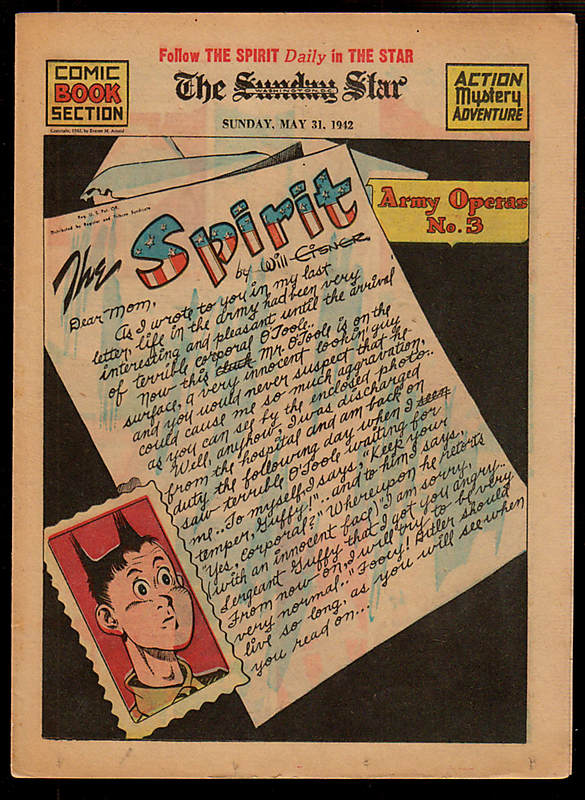 Follow THE SPIRIT Daily in THE STAR
COMIC
BOOK
SECTION
The Sunday Star
WASHINGTON DC
ACTION
Mystery
ADVENTURE
Copyright, 1942, by Everett M. Arnold
SUNDAY, MAY 31, 1942
Reg. U. S. Pat. Off.
Distributed by Register and Tribune Syndicate
The Spirit
by Will Eisner
Army Operas
No. 3
Dear Mom,
As I wrote to you in my last
letter, life in the army had been very
interesting and pleasant until the arrival
of terrible corporal O'Toole..
Now this cluck Mr. O'Toole is on the
surface, a very innocent lookin' guy
and you would never suspect that he
could cause me so much aggravation,
as you can see by the enclosed photo..
Well, anyhow, I was discharged
from the hospital and am back on
duty the following day when I seen
saw terrible O'Toole waiting for
me.. To myself I says, "Keep your
temper, Guffy!"..and to him I says,
"Yes, corporal?" Whereupon he retorts
(with an innocent face) "I am sorry,
Sergeant Guffy that I got you angry..
From now on, I will try to be very
very normal.." Fooey! Hitler should
live so long, as you will see when
you read on...